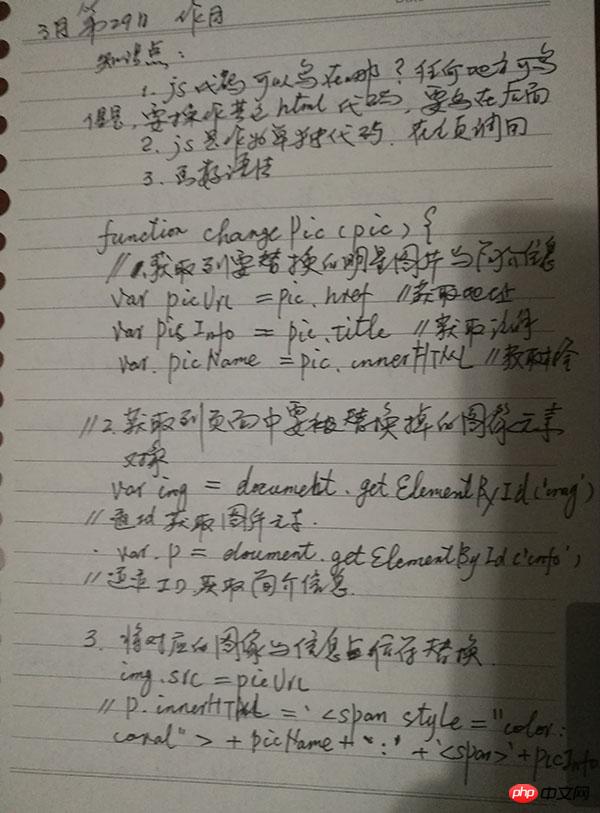 3月第29日 作月
知识点:
1. js代码可以写在哪?任何地方可写
但是,要操作其它html代码,要写在后面
2. js是作为单独代码.在<页调回
3. 函数语法
function changePic(pic) {
//1.获取到要替换的明星图片与简介信息
var picUrl = pic.href //获取地址
var picInfo = pic.title //获取
var. picName = pic.innerHTML //获取
//2.获取到页面中要被替换掉的图像元素
对象
var img = document.getElementById('img')
//通过id获取图片元素.
var. p = document.getElementById('info')
//通过ID获取简介信息.
3. 将对应的图像与信息替换.
img.src = picUrl
// p.innerHTML = '<span style="color:
coral"> + picName + ":" + '<span>' + picInfo
php 中文网